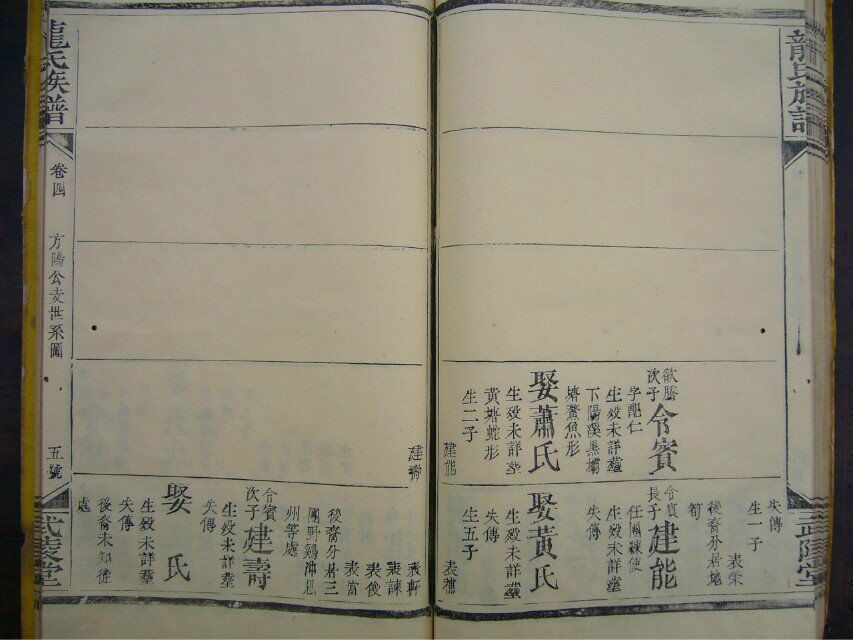 龍氏族譜
武陵堂
欲勝
次子
令賓
生殁未詳塟
下陽溪黑壩
塘鰲魚形
娶蕭氏
生殁未詳塟
黃塘蜣形
生二子
建能
建壽
失傳
生一子
表榮
後裔分居地
筍
令賓
長子
建能
任團練使
生殁未詳塟
失傳
娶黃氏
生殁未詳塟
失傳
生五子
表補
表軒
表諫
表後
表富
後裔分居三
團野鷄沖思
州等處
令賓
次子
建壽
生殁未詳塟
失傳
娶 氏
生殁未詳塟
失傳
後裔未知徙
處
龍氏族譜
卷四
方陽公支世系圖
五號
武陵堂